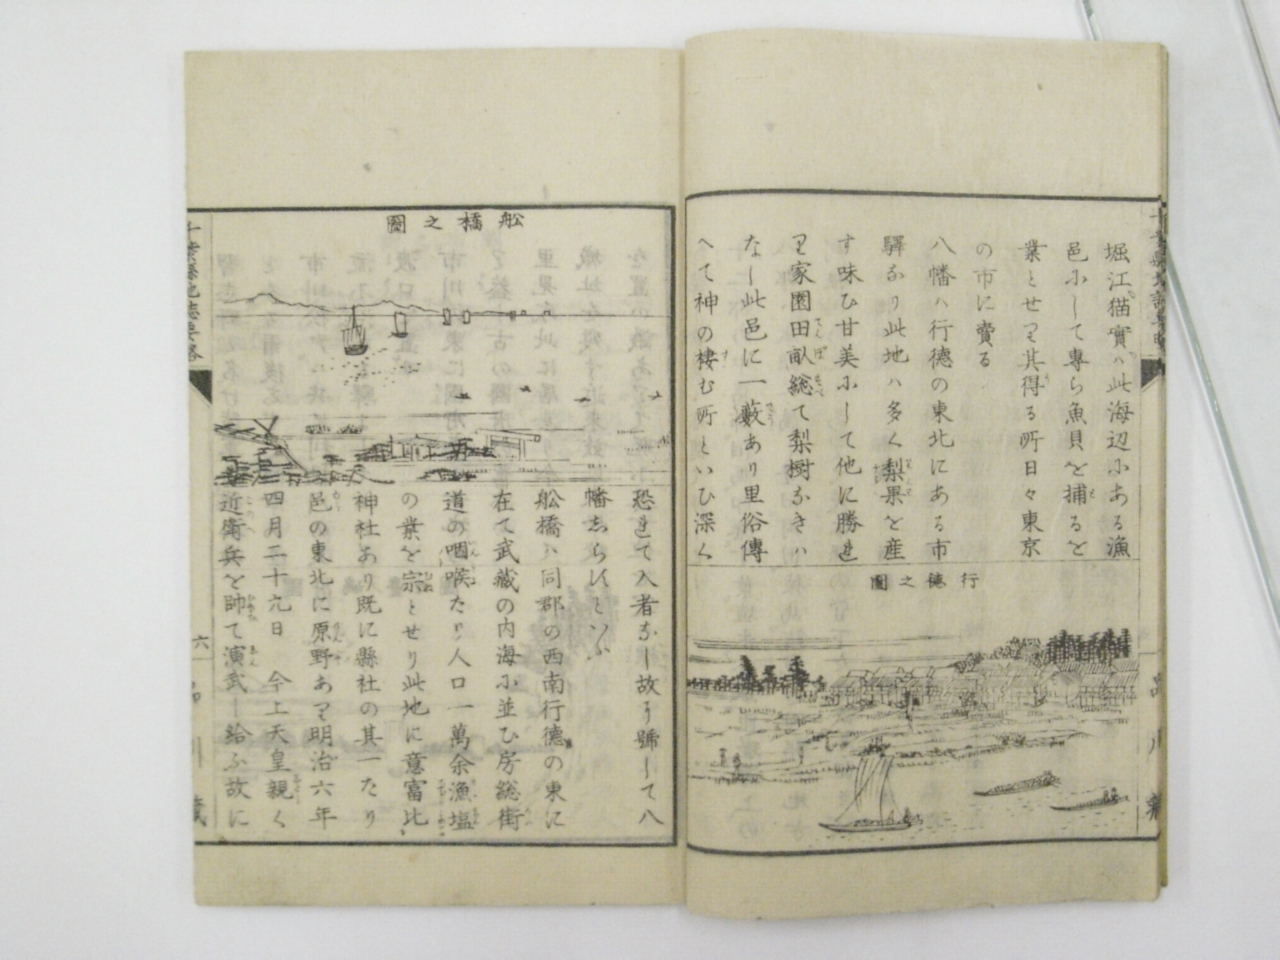 堀江猫實ハ此海辺小ある漁
邑小して專ら魚貝を捕るを
業とせり其得る所日々東京
の市に賣る
八幡ハ行徳の東北にある市
驛なり此地ハ多く梨果を産
す味ひ甘美小して他に勝れ
り家園田畝総て梨樹なきハ
なし此邑に一藪あり里俗傳
へて神の棲む所といひ深く
行徳之圖
舩橋之圖
恐れて入者なし故り號して八
幡志らずといふ
舩橋ハ同郡の西南行徳の東に
在て武蔵の内海小並ひ房総街
道の咽喉たり人口一萬余漁塩
の業を宗とせり此地に意富比
神社あり既に縣社の其一たり
邑の東北に原野あり明治六年
四月二十九日　今上天皇親く
近衛兵を帥て演武し給ふ故に
千葉縣地誌要畧
六